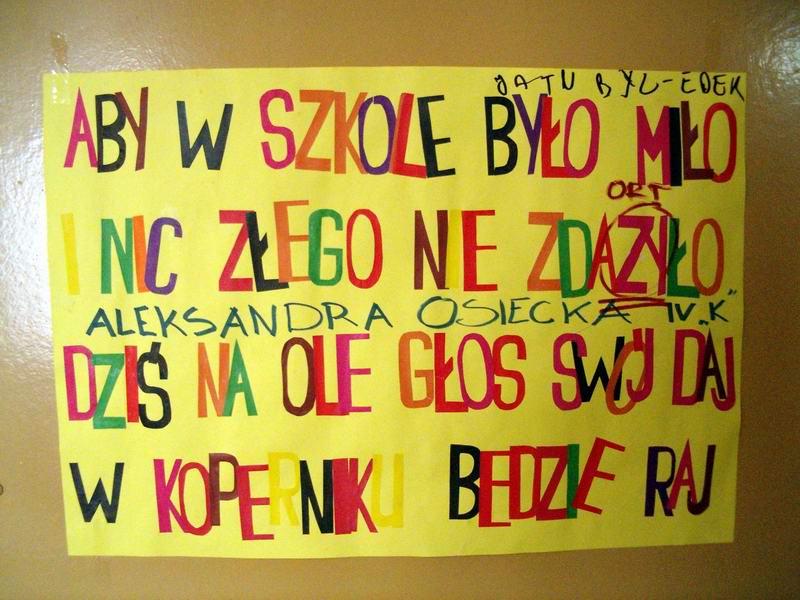 JA TU BYŁ-EDEK
ABY W SZKOLE BYŁO MIŁO
ORT
I NIC ZŁEGO NIE ZDAZYŁO
ALEKSANDRA OSIECKA IV „K”
DZIŚ NA OLE GŁOS SWÓJ DAJ
W KOPERNIKU BEDZIE RAJ